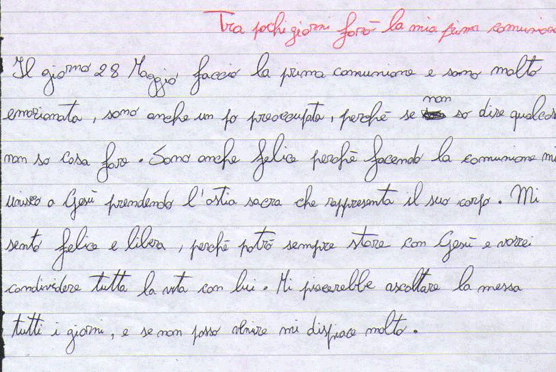 Tra pochi giorni farò la mia prima comunione
Il giorno 28 Maggio faccio la prima comunione e sono molto
emozionata, sono anche un po preoccupata, perchè se non so dire qualcosa
non so cosa fare. Sono anche felice perchè facendo la comunione mi
unisco a Gesù prendendo l'ostia sacra che rappresenta il suo corpo. Mi
sento felice e libera, perchè potrò sempre stare con Gesù e vorrei
condividere tutta la vita con lui. Mi piacerebbe ascoltare la messa
tutti i giorni, e se non posso venire mi dispiace molto.